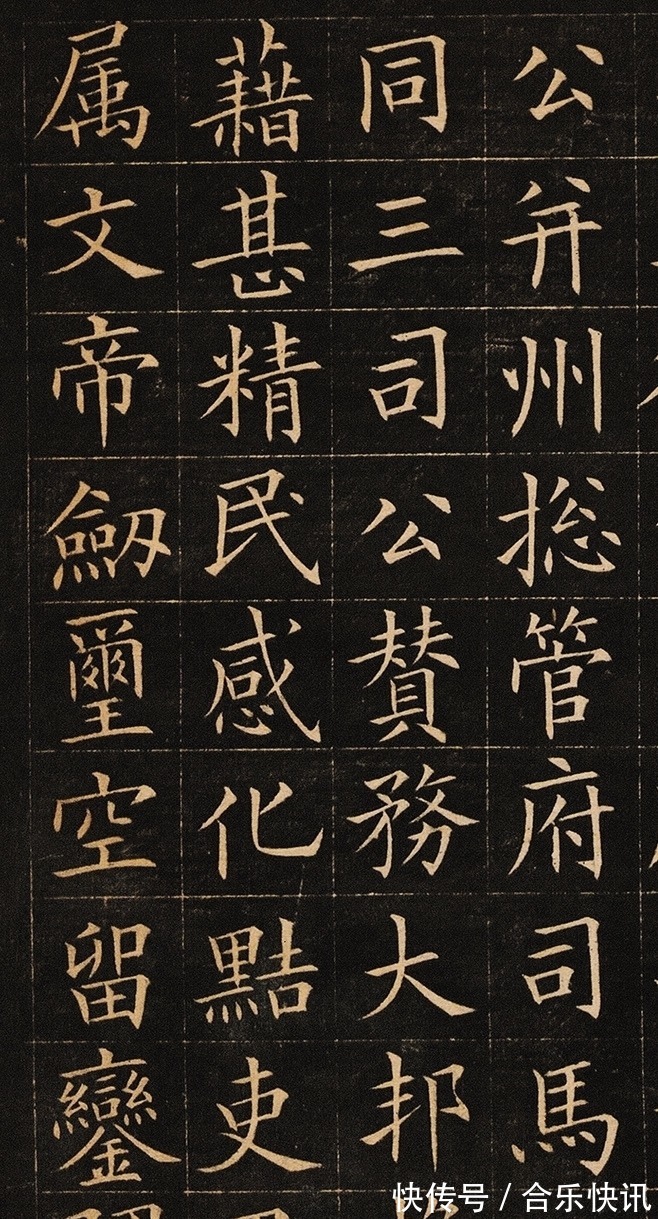 公并州捴管府司馬
同三司公賛務大邦
藉甚精民感化黠吏
属文帝劒璽空留鑾
快传号 / 合乐快讯